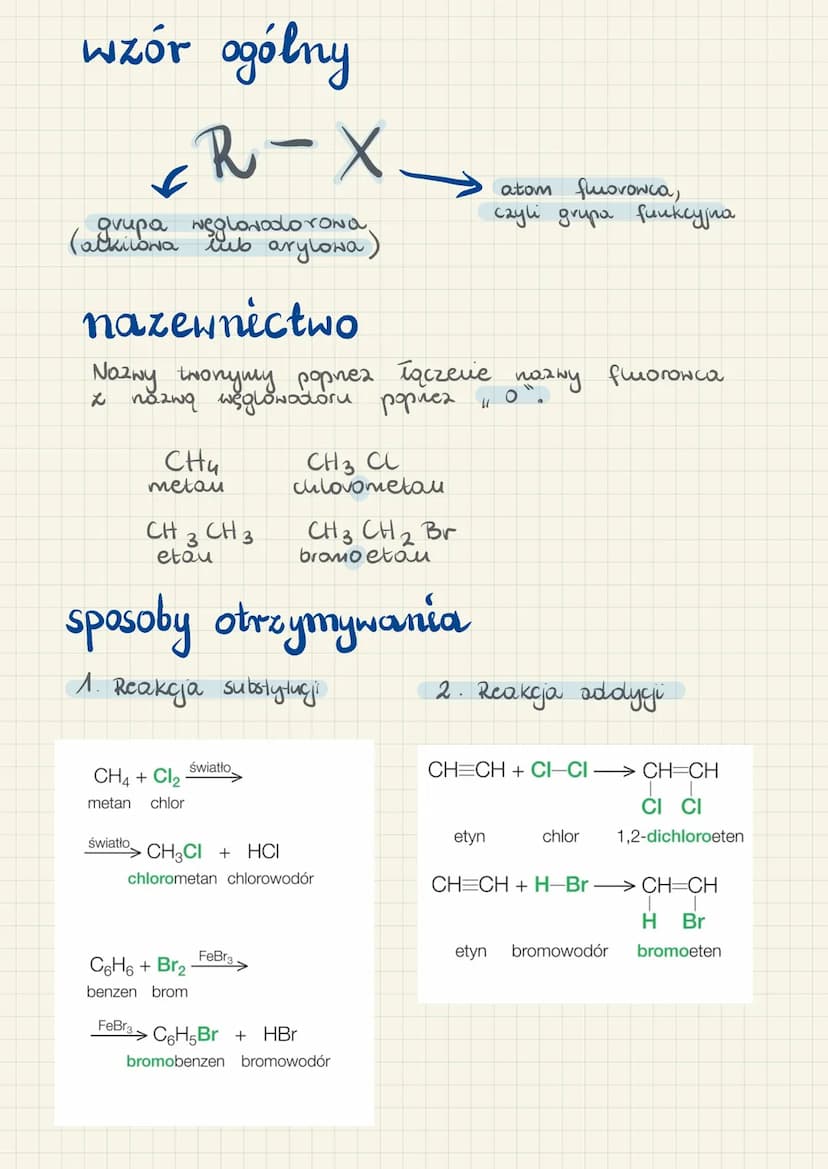 wzór ogólny
R – X
atom fluorowca,
czyli grupa funkcyjna
grupa węglowodorowa
(alkilowa lub arylowa)
nazewnictwo
Nazwy tworzymy poprzez łączenie nazwy fluorowca
z nazwą węglowodoru poprzez „o”.
CH4 CH3Cl
metan chlorometan
CH3CH3 CH3CH2Br
etan bromoetan
sposoby otrzymywania
1. Reakcja substytucji
2. Reakcja addycji
CH₄ + Cl₂ światło→
metan chlor
światło→ CH₃Cl + HCl
chlorometan chlorowodór
C₆H₆ + Br₂ FeBr₃→
benzen brom
FeBr₃→ C₆H₅Br + HBr
bromobenzen bromowodór
CH≡CH + Cl–Cl → CH=CH
Cl Cl
etyn chlor 1,2-dichloroeten
CH≡CH + H–Br → CH=CH
H Br
etyn bromowodór bromoeten